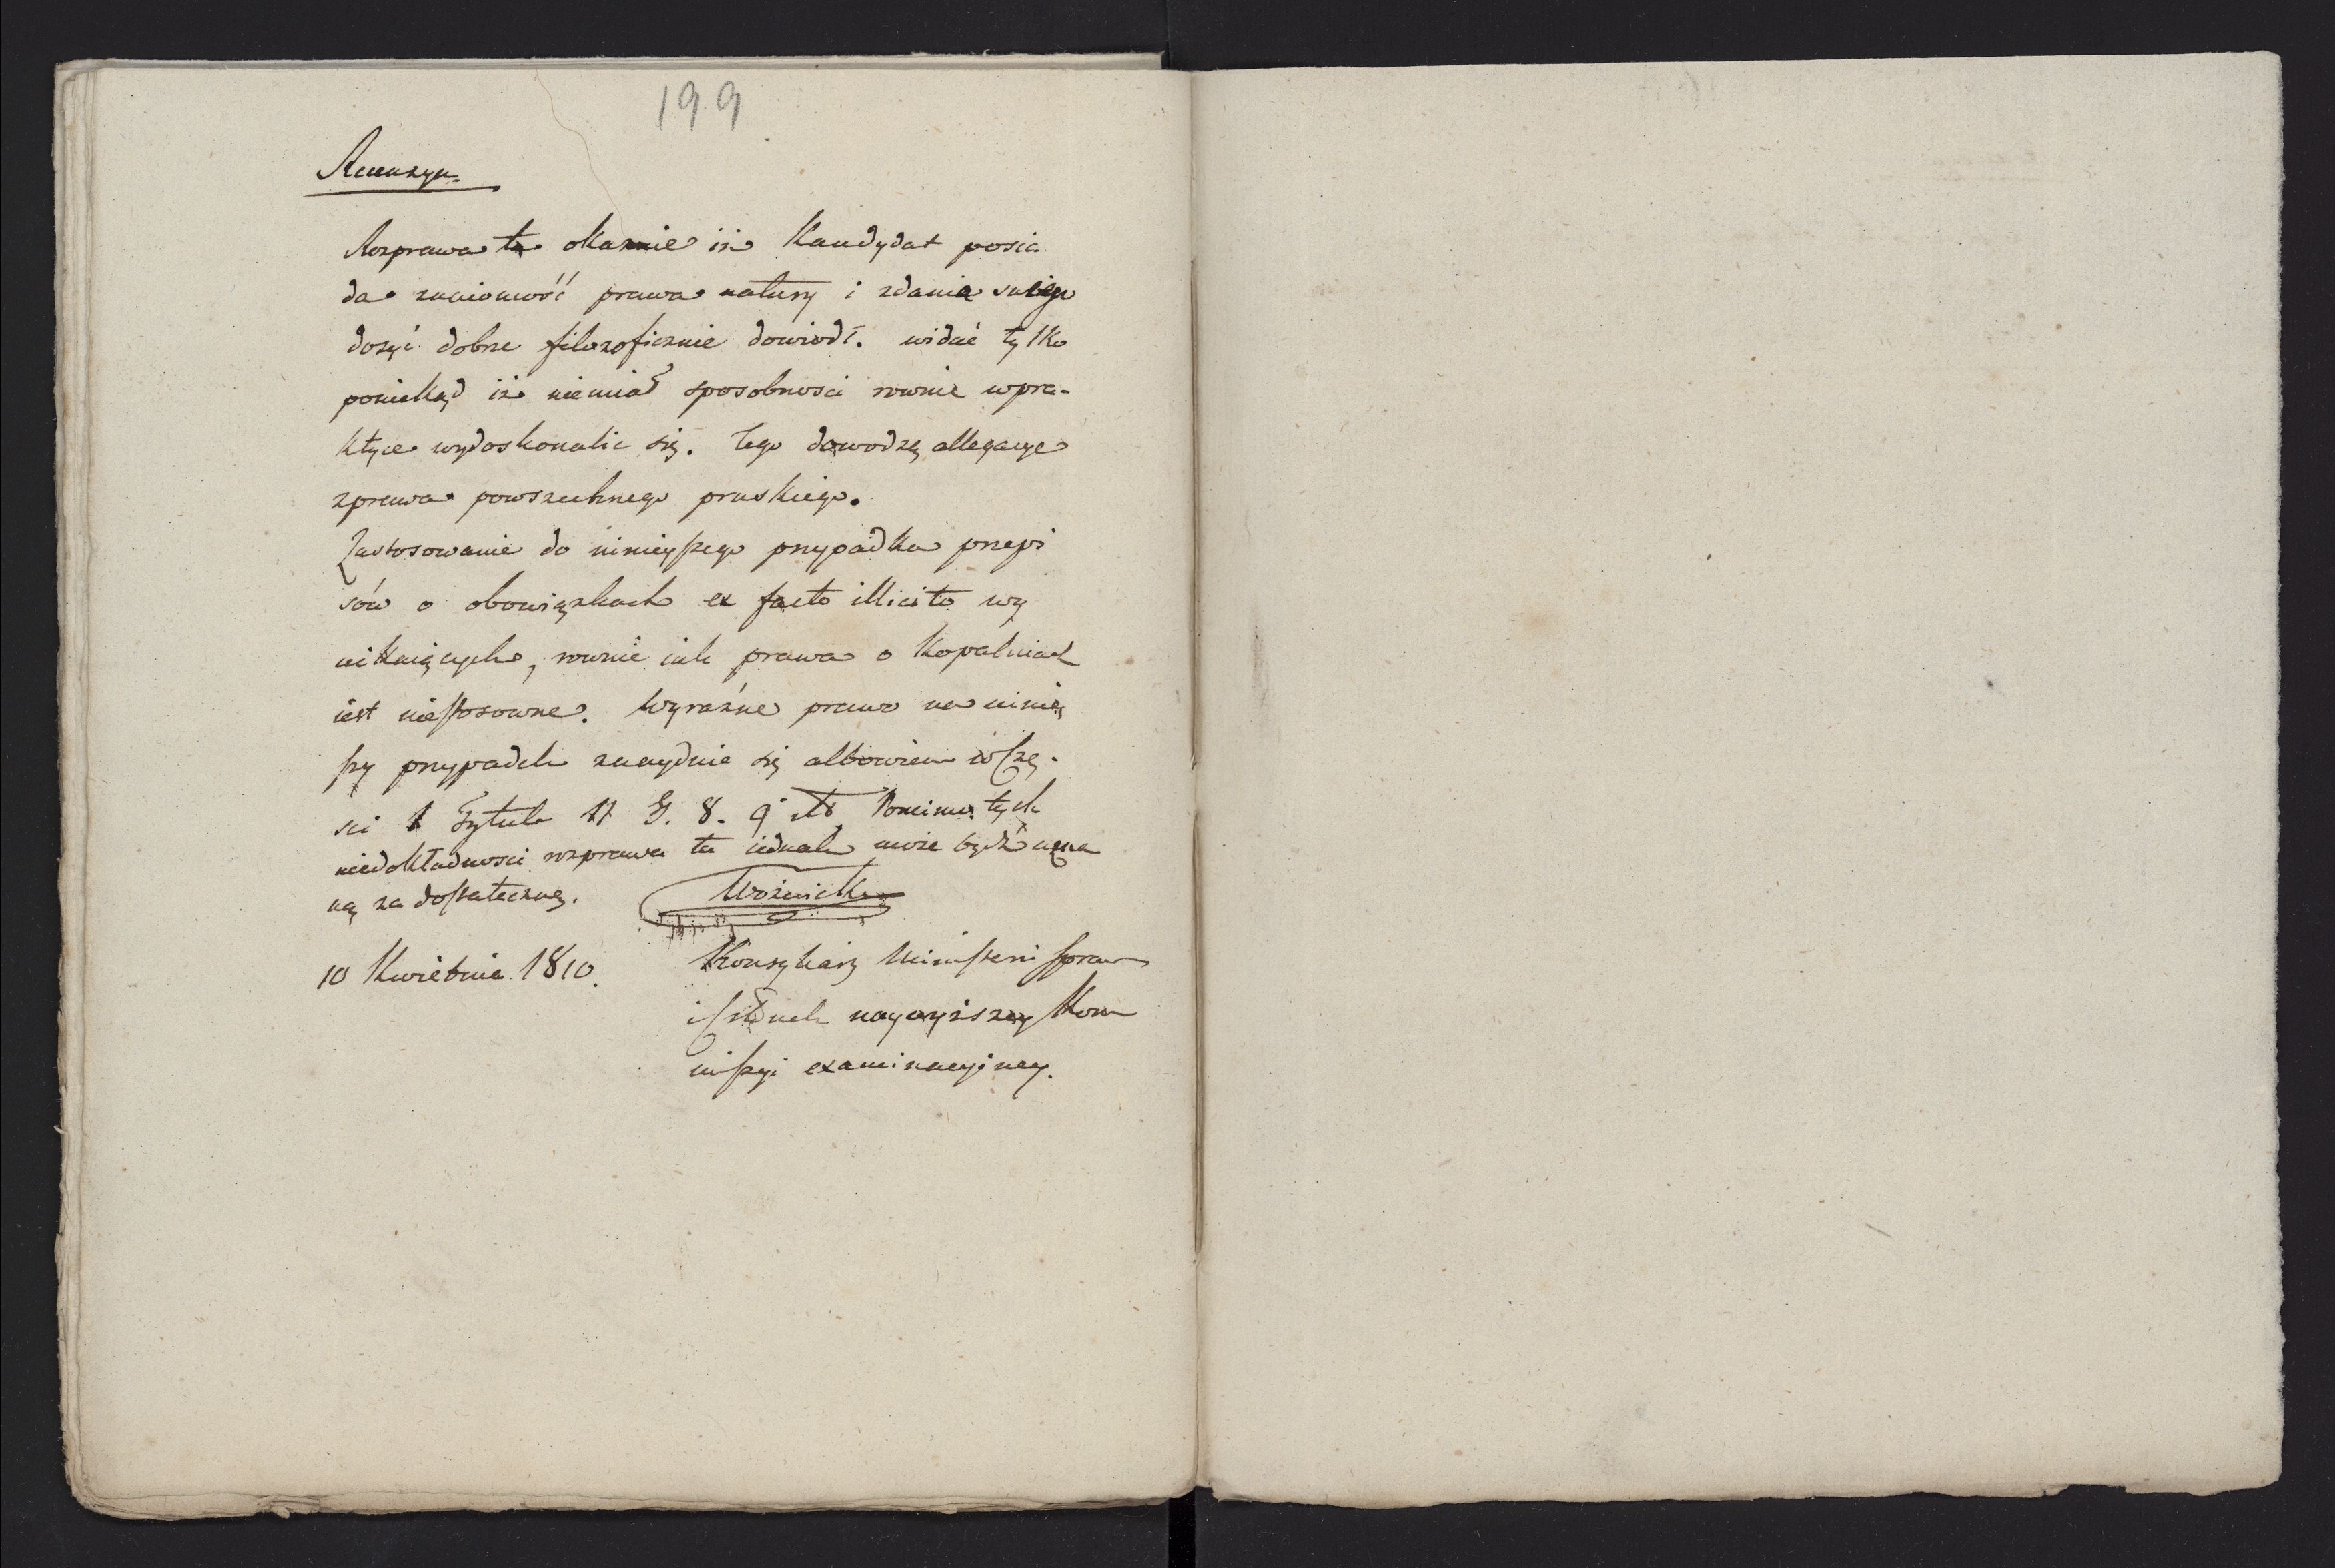 199
Recenzya
Rozprawa ta okazuie iż Kandydat posia
da znaiomość prawa natury i zdania swego
dosyć dobrze filozoficznie dowiodł. widać tylko
poniekąd iż niemiał sposobnosci rownie wpra-
ktyce wydoskonalic się. Tego dowodzą allegacye
zprawa powszechnego pruskiego.
Zastosowanie do ninieyszego przypadku przepi
sów o obowiązkach ex facto illicito wy
nikaiących, rownie iak prawa o kopalniach
iest niestosowne. Wyraźne prawo na niniey
szy przypadek znayduie się albowiem w czę-
sci 1 Tytule 11 §. 8. 9 Pomimo tych
niedokładnosci rozprawa ta iednak może bydź uzna
ną za dostateczną. Woźnicki
10 Kwietnia 1810. Konsyliarz Ministerii spraw
i naywyższey Kom
missyi examinacyiney.